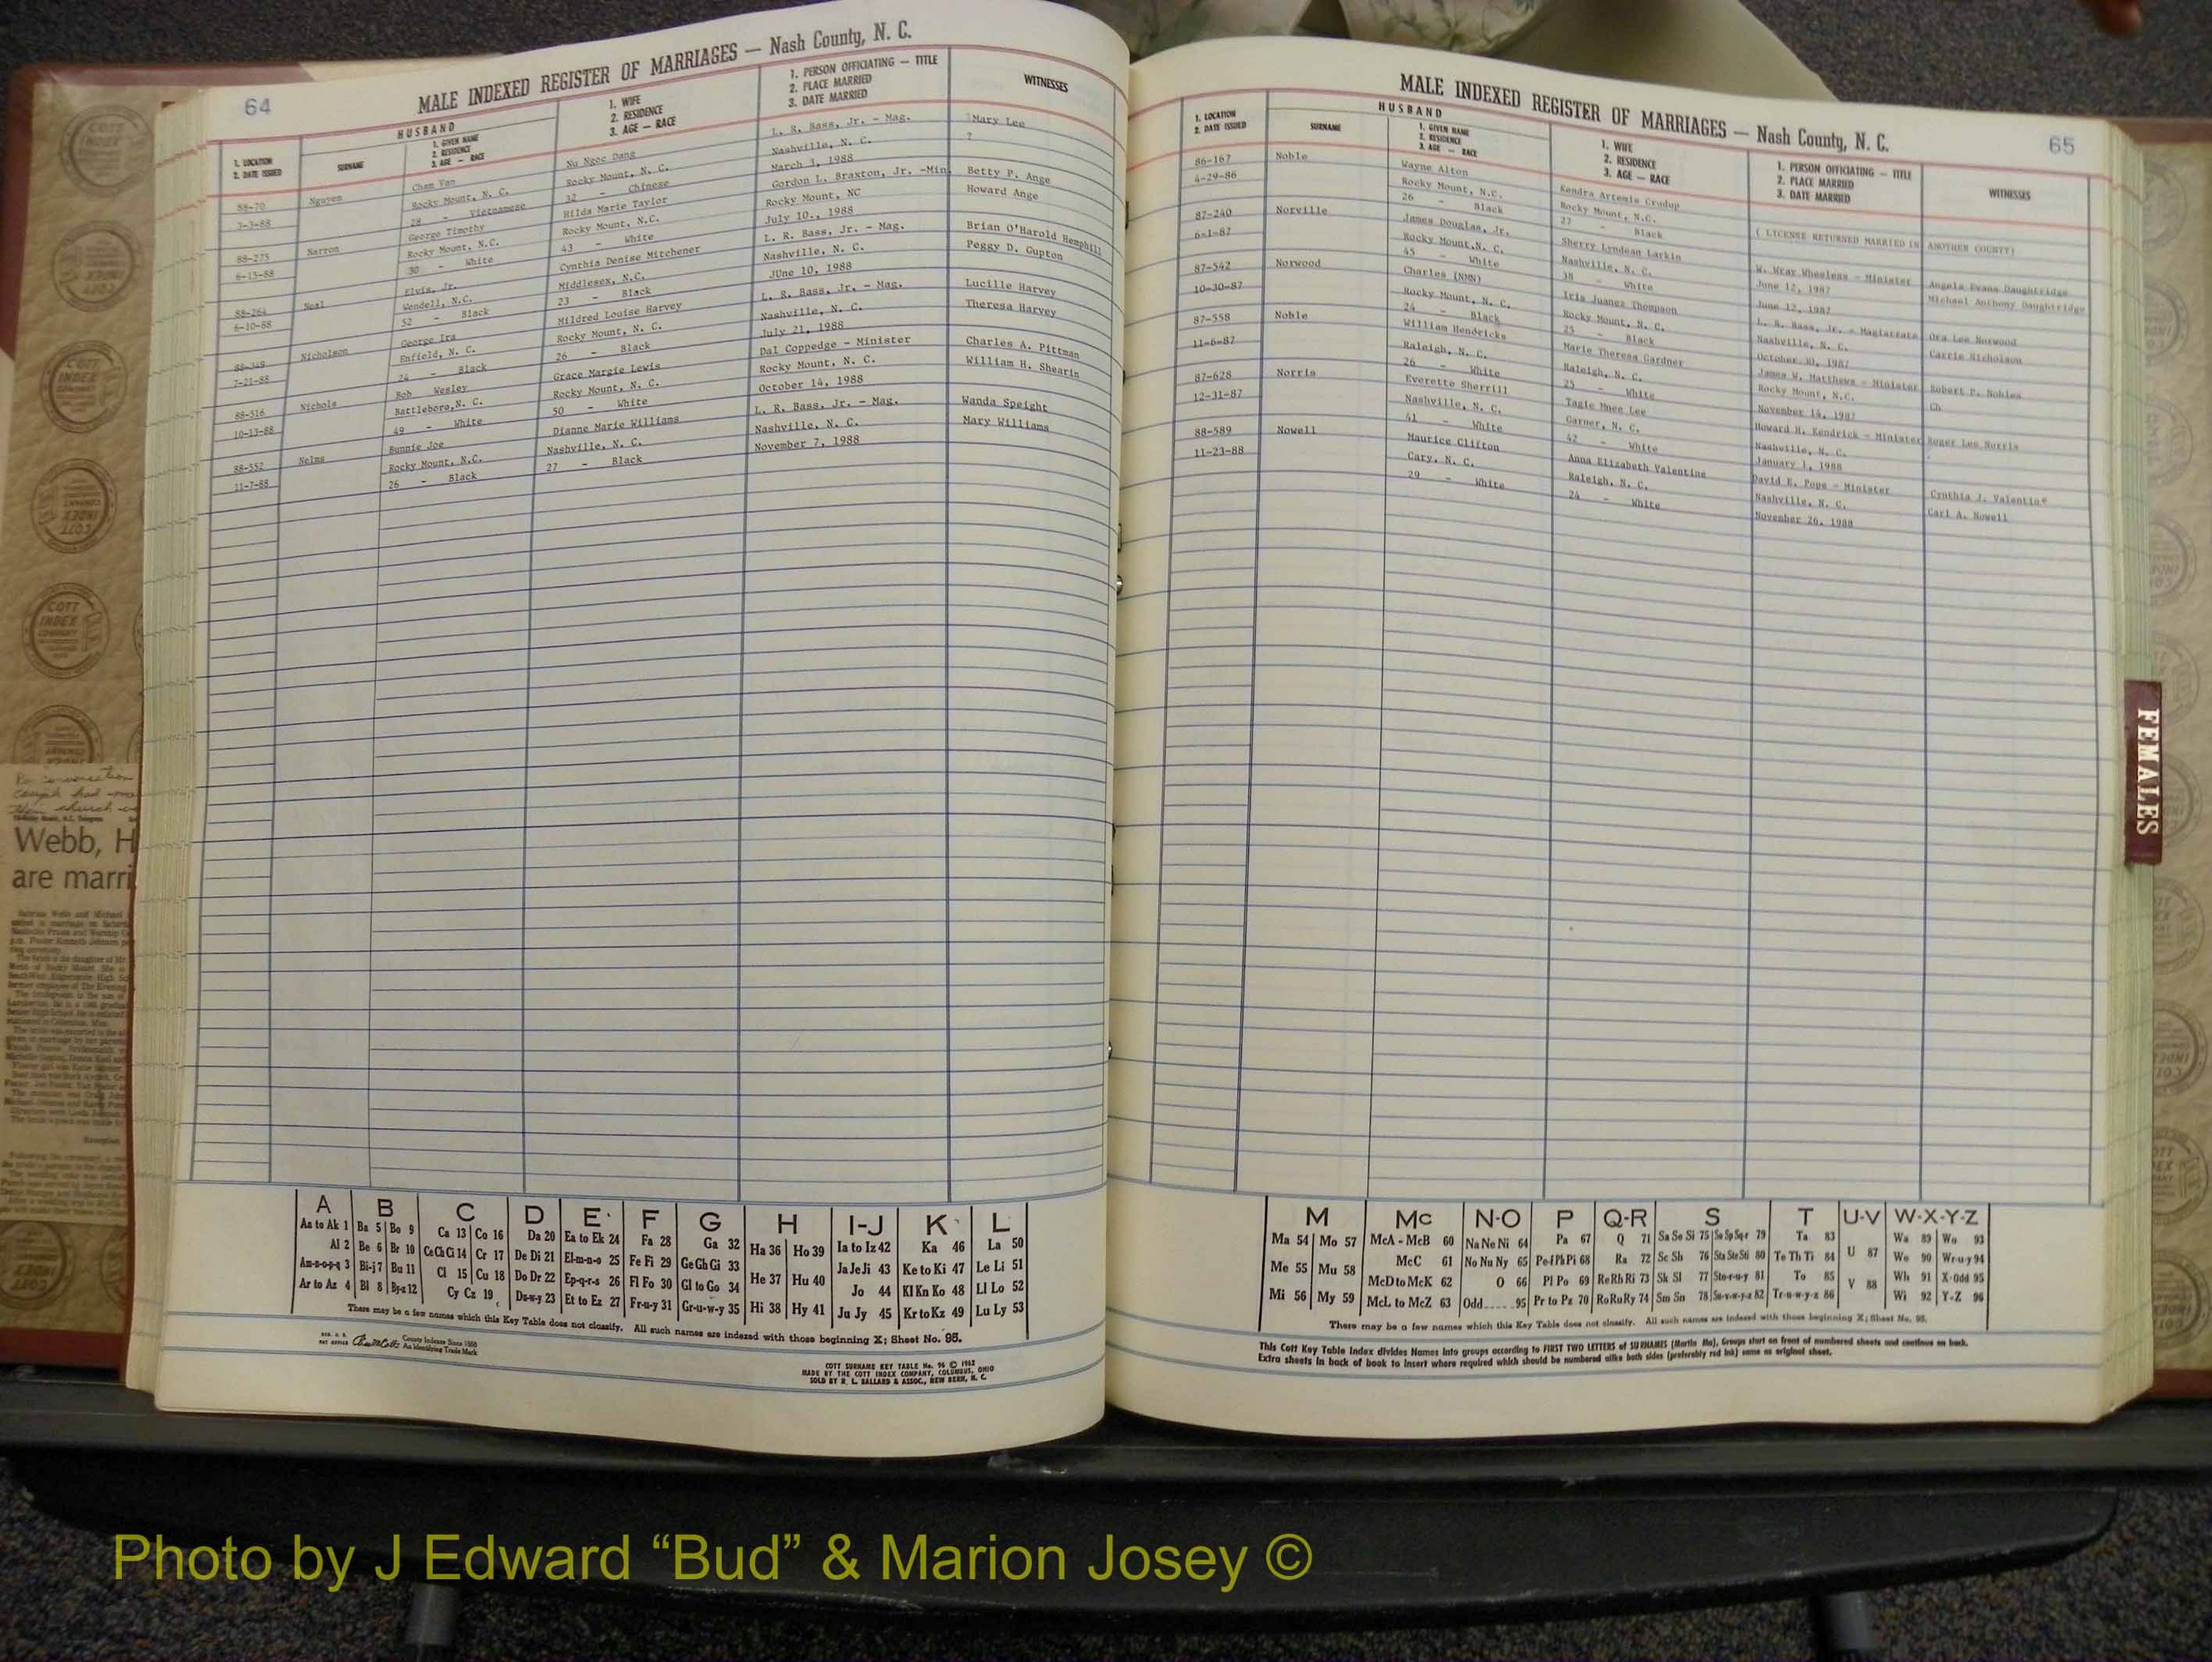 64
MALE INDEXED REGISTER OF MARRIAGES — Nash County, N. C.
1. LOCATION
2. DATE ISSUED
HUSBAND
SURNAME
1. GIVEN NAME
2. RESIDENCE
3. AGE — RACE
1. WIFE
2. RESIDENCE
3. AGE — RACE
1. PERSON OFFICIATING — TITLE
2. PLACE MARRIED
3. DATE MARRIED
WITNESSES
88-70 Nguyen Cham Van Nu Ngoc Dang L. R. Bass, Jr. - Mag. Mary Lee
3-3-88 Rocky Mount, N. C. Rocky Mount, N. C. Nashville, N. C. ?
28 - Vietnamese 32 - Chinese March 3, 1988
88-275 Narron George Timothy Hilda Marie Taylor Gordon L. Braxton, Jr. -Min. Betty P. Ange
6-15-88 Rocky Mount, N.C. Rocky Mount, N.C. Rocky Mount, NC Howard Ange
30 - White 43 - White July 10., 1988
88-264 Neal Elvis, Jr. Cynthia Denise Mitchener L. R. Bass, Jr. - Mag. Brian O'Harold Hemphill
6-10-88 Wendell, N.C. Middlesex, N.C. Nashville, N. C. Peggy D. Gupton
52 - Black 23 - Black JUne 10, 1988
88-349 Nicholson George Ira Mildred Louise Harvey L. R. Bass, Jr. - Mag. Lucille Harvey
7-21-88 Enfield, N. C. Rocky Mount, N. C. Nashville, N. C. Theresa Harvey
24 - Black 26 - Black July 21, 1988
88-516 Nichols Bob Wesley Grace Margie Lewis Dal Coppedge - Minister Charles A. Pittman
10-13-88 Battleboro,N. C. Rocky Mount, N. C. Rocky Mount, N. C. William H. Shearin
49 - White 50 - White October 14, 1988
88-552 Nelms Bunnie Joe Dianne Marie Williams L. R. Bass, Jr. - Mag. Wanda Speight
11-7-88 Rocky Mount, N.C. Nashville, N. C. Nashville, N. C. Mary Williams
26 - Black 27 - Black November 7, 1988
A B C D E F G H I-J K L
Aa to Ak 1 Ba 5 Bo 9 Ca 13 Co 16 Da 20 Ea to Ek 24 Fa 28 Ga 32 Ha 36 Ho 39 Ia to Iz 42 Ka 46 La 50
Al 2 Be 6 Br 10 Ce Ch Ci 14 Cr 17 De Di 21 El-m-n-o 25 Fe Fi 29 Ge Gh Gi 33 He 37 Hu 40 Ja Je Ji 43 Ke to Ki 47 Le Li 51
Am-n-o-p-q 3 Bi-j 7 Bu 11 Cl 15 Cu 18 Do Dr 22 Ep-q-r-s 26 Fl Fo 30 Gl to Go 34 Hi 38 Hy 41 Jo 44 Kl Kn Ko 48 Ll Lo 52
Ar to Az 4 Bl 8 By-z 12 Cy Cz 19 Du-w-y 23 Et to Ez 27 Fr-u-y 31 Gr-u-w-y 35 Ju Jy 45 Kr to Kz 49 Lu Ly 53
There may be a few names which this Key Table does not classify. All such names are indexed with those beginning X; Sheet No. 95.
County Indexes Since 1888
An Identifying Trade Mark
COTT SURNAME KEY TABLE No. 96 © 1962
MADE BY THE COTT INDEX COMPANY, COLUMBUS, OHIO
SOLD BY R. L. BALLARD & ASSOC., NEW BERN, N. C.
MALE INDEXED REGISTER OF MARRIAGES — Nash County, N. C.
65
1. LOCATION
2. DATE ISSUED
HUSBAND
SURNAME
1. GIVEN NAME
2. RESIDENCE
3. AGE — RACE
1. WIFE
2. RESIDENCE
3. AGE — RACE
1. PERSON OFFICIATING — TITLE
2. PLACE MARRIED
3. DATE MARRIED
WITNESSES
86-167 Noble Wayne Alton Kendra Artemis Crudup
4-29-86 Rocky Mount, N.C. Rocky Mount, N.C. ( LICENSE RETURNED MARRIED IN ANOTHER COUNTY)
26 - Black 27 - Black
87-240 Norville James Douglas, Jr. Sherry Lyndean Larkin W. Wray Wheeless - Minister Angela Evans Daughtridge
6-1-87 Rocky Mount,N. C. Nashville, N. C. June 12, 1987 Michael Anthony Daughtridge
45 - White 38 - White June 12, 1987
87-542 Norwood Charles (NMN) Iris Juanez Thompson L. R. Bass, Jr. - Magistrate Ora Lee Norwood
10-30-87 Rocky Mount, N. C. Rocky Mount, N. C. Nashville, N. C. Carrie Nicholson
24 - Black 25 - Black October 30, 1987
87-558 Noble William Hendricks Marie Theresa Gardner James W. Matthews - Minister Robert P. Nobles
11-6-87 Raleigh, N. C. Raleigh, N. C. Rocky Mount, N.C. Ch
26 - White 25 - White November 14, 1987
87-628 Norris Everette Sherrill Tagie Mnee Lee Howard M. Kendrick - Minister Roger Lee Norris
12-31-87 Nashville, N. C. Garner, N. C. Nashville, N. C.
41 - White 42 - White January 1, 1988
88-589 Nowell Maurice Clifton Anna Elizabeth Valentine David E. Pope - Minister Cynthia J. Valentine
11-23-88 Cary, N. C. Raleigh, N. C. Nashville, N. C. Carl A. Nowell
29 - White 24 - White November 26, 1988
M Mc N-O P Q-R S T U-V W-X-Y-Z
Ma 54 Mo 57 McA - McB 60 Na Ne Ni 64 Pa 67 Q 71 Sa Se Si 75 So Sp Sq-r 79 Ta 83 U 87 Wa 89 Wo 93
Me 55 Mu 58 McC 61 No Nu Ny 65 Pe-f Ph Pi 68 Ra 72 Sc Sh 76 Sta Ste Sti 80 Te Th Ti 84 V 88 We 90 Wr-u-y 94
Mi 56 My 59 McD to McK 62 O 66 Pl Po 69 Re Rh Ri 73 Sk Sl 77 Sto-r-u-y 81 To 85 Wh 91 X-Odd 95
McL to McZ 63 Odd 95 Pr to Pz 70 Ro Ru Ry 74 Sm Sn 78 Su-v-w-y-z 82 Tr-u-w-y-z 86 Wi 92 Y-Z 96
There may be a few names which this Key Table does not classify. All such names are indexed with those beginning X; Sheet No. 95.
This Cott Key Table Index divides Names into groups according to FIRST TWO LETTERS of SURNAMES (Martin Ma), Groups start on front of numbered sheets and continue on back.
Extra sheets in back of book to insert where required which should be numbered alike both sides (preferably red ink) same as original sheet.
FEMALES
COTT
INDEX
COMPANY
Webb, H
are marri
Photo by J Edward “Bud” & Marion Josey ©